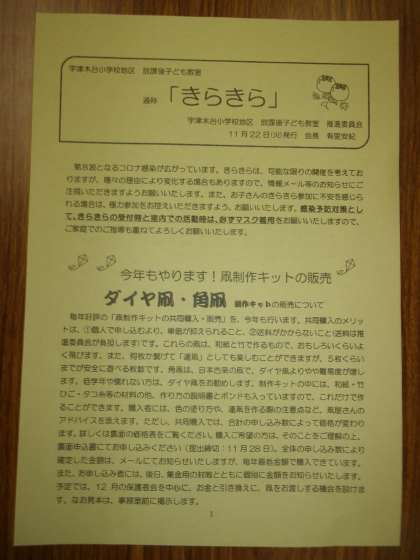 宇津木台小学校地区 放課後子ども教室
通称 「きらきら」
宇津木台小学校地区 放課後子ども教室 推進委員会
11月22日(火)発行 会長 有里安紀
第8波となるコロナ感染が広がっています。きらきらは、可能な限りの開催を考えてお
りますが、種々の理由により変化する場合もありますので、情報メール等のお知らせにご
注視いただきますようお願いいたします。また、お子さんのきらきら参加に不安を感じら
れる場合は、極力参加をお控えいただきますよう、お願いいたします。感染予防対策とし
て、きらきらの受付時と室内での活動時は、必ずマスク着用をお願いいたしますので、
ご家庭でのご指導も重ねてよろしくお願いいたします。
今年もやります！凧制作キットの販売
ダイヤ凧・角凧 制作キットの販売について
毎年好評の「凧制作キットの共同購入・販売」を、今年も行います。共同購入のメリッ
トは、①個人で申し込むより、単価が抑えられること、②送料がかからないこと(送料は推
進委員会が負担します)です。これらの凧は、和紙と竹で作るもので、おもしろいくらいよ
く飛びます。また、何枚か繋げて「連凧」としても楽しむことができますが、5枚くらい
までが安全に遊べる枚数です。角凧は、日本古来の凧で、ダイヤ凧よりやや難易度が増し
ます。低学年や慣れない方は、ダイヤ凧をお勧めします。制作キットの中には、和紙・竹
ひご・タコ糸等の材料の他、作り方の説明書とボンドも入っていますので、これだけで作
ることができます。購入者には、色の塗り方や、連凧を作る際の注意点など、凧屋さんの
アドバイスを添えます。ただし、共同購入では、合計の申し込み数によって価格が変わり
ます。詳しくは裏面の価格表をご覧ください。購入ご希望の方は、そのことをご理解の上、
裏面申込書にてお申し込みください(提出締切：11月28日)。全体の申し込み数により
確定した金額は、メールにてお知らせいたしますが、毎年最低金額で購入できています。
また、お申し込み者には、後日、集金用の封筒とともに個別に金額をお知らせいたします。
予定では、12月の保護者会を中心に、お金と引き換えに、凧をお渡しする機会を設けま
す。なお見本は、事務室前に掲示します。
1